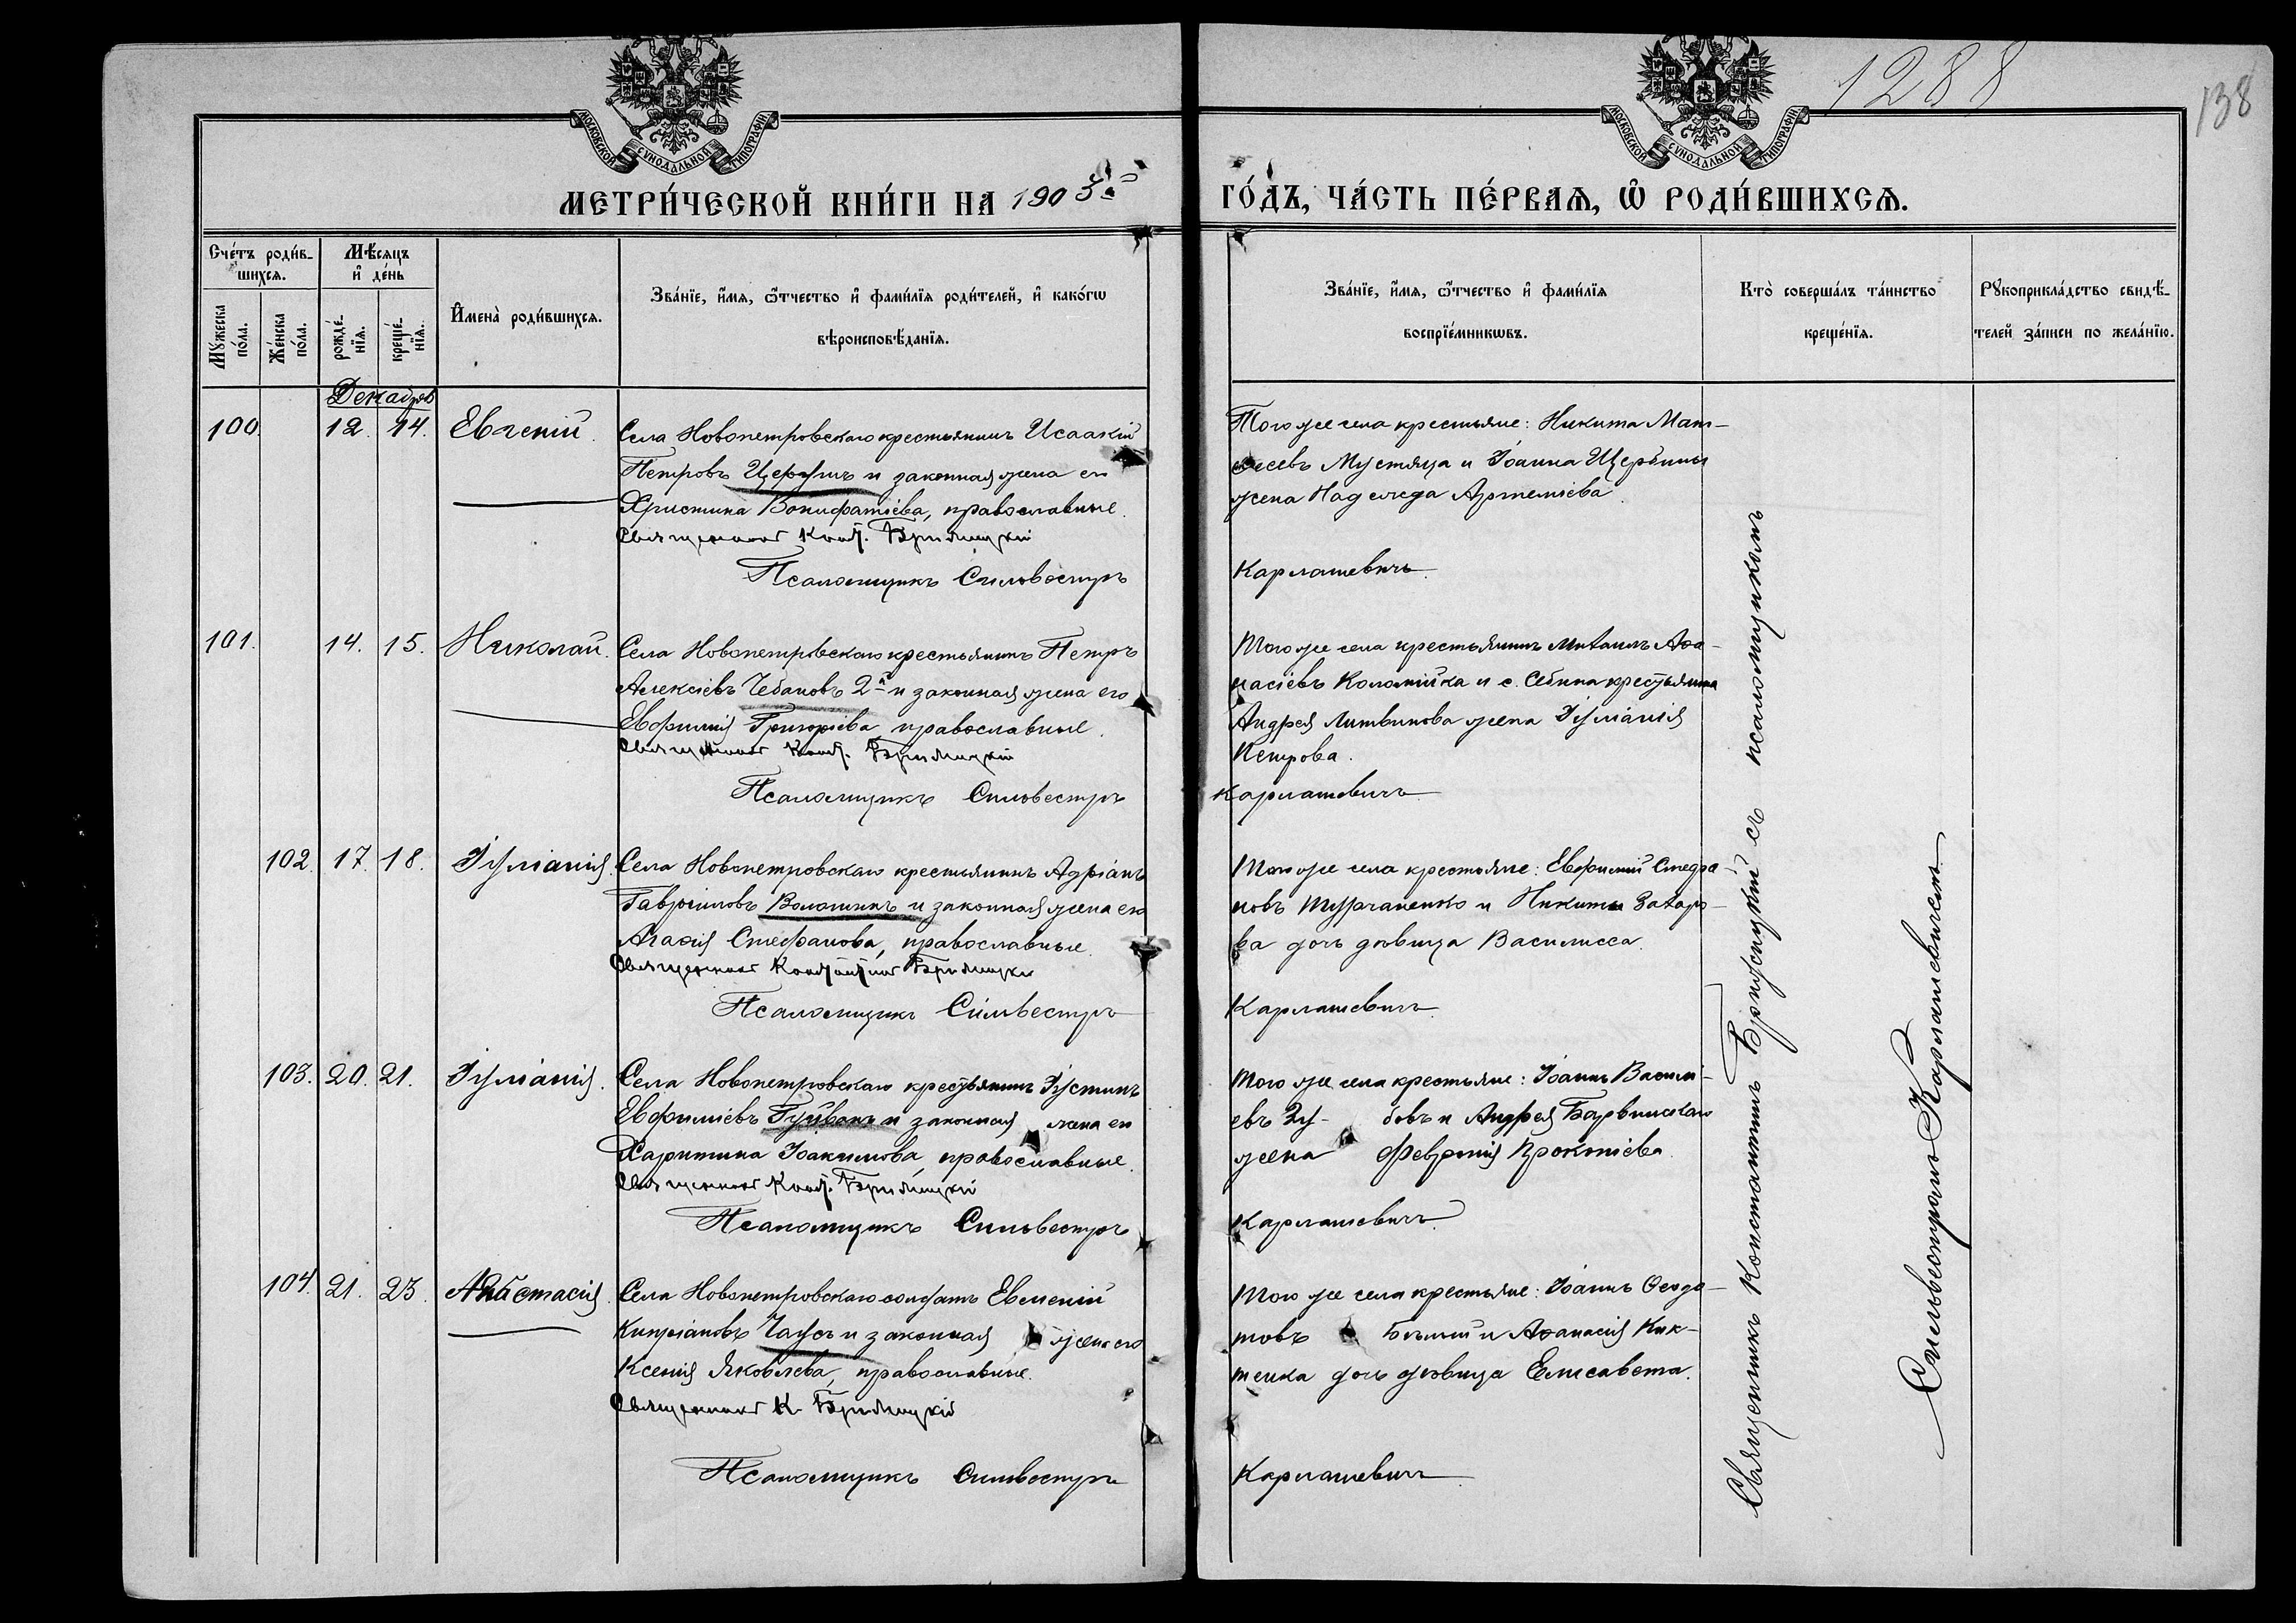 1288
138
МОСКОВСКОЙ СѴНОДАЛЬНОЙ ТИПОГРАФІИ
МОСКОВСКОЙ СѴНОДАЛЬНОЙ ТИПОГРАФІИ
МЕТРИ́ЧЕСКОЙ КНИ́ГИ НА 1903й
ГО́ДЪ, ЧА́СТЬ ПЕ́РВАѦ, Ѡ҆ РОДИ́ВШИХСѦ.
Сче́тъ роди́в-
шихсѧ.
Мꙋ́жеска по́ла.
Же́нска по́ла.
Мѣ́сѧцъ
и҆ де́нь
рожде́-нїѧ.
креще́-нїѧ.
И҆мена̀ роди́вшихсѧ.
Зва́нїе, и҆́мѧ, ѻ҆́тчество и҆ фами́лїѧ роди́телей, и҆ како́гѡ
вѣроисповѣ́данїѧ.
Зва́нїе, и҆́мѧ, ѻ҆́тчество и҆ фами́лїѧ
воспрїе́мникѡвъ.
Кто̀ соверша́лъ та́инство
креще́нїѧ.
Рꙋкоприкла́дство свидѣ́-
телей за́писи по жела́нїю.
Декабрь
100. 12. 14. Евгеній.
Села Новопетровскаго крестьянинъ Исаакій
Петровъ и законная жена его
Христина Вонифатіева, православные.
Священник Конст. Бржизицкій
Псаломщикъ Сильвестръ
Того же села крестьяне: Никита Мат-
ѳеевъ Мустяца и Іоанна Щербины
жена Надежда Артеміева.
Карлашевичъ.
101. 14. 15. Николай.
Села Новопетровскаго крестьянинъ Петръ
Алексіевъ Чебановъ 2й и законная жена его
Евфимія Григоріева, православные.
Священник Конст. Бржизицкій
Псаломщикъ Сильвестръ
Того же села крестьянинъ Михаилъ Аѳа-
насіевъ Коломійка и с. Себина крестьянина
Андрея Литвинова жена Іуліанія
Петрова.
Карлашевичъ.
102. 17. 18. Іуліанія.
Села Новопетровскаго крестьянинъ Адріанъ
Гавріиловъ Волошинъ и законная жена его
Агаѳія Стефанова, православные.
Священник Константин Бржизицкій
Псаломщикъ Сильвестръ
Того же села крестьяне: Евфимій Стефа-
новъ и Никиты Захаро-
ва дочь дѣвица Василисса.
Карлашевичъ.
103. 20. 21. Іуліанія.
Села Новопетровскаго крестьянинъ Іустинъ
Евфиміевъ Гуйванъ и законная жена его
Харитина Іоакимова, православные.
Священник Конст. Бржизицкій
Псаломщикъ Сильвестръ
Того же села крестьяне: Іоаннъ Василі-
евъ Зу- бовъ и Андрея Барвинскаго
жена Февронія Прокопіева.
Карлашевичъ.
104. 21. 23. Анастасія.
Села Новопетровскаго солдатъ Евменій
Кипріановъ Чаусъ и законная жена его
Ксенія Яковлева, православные.
Священник К. Бржизицкій
Псаломщикъ Сильвестръ
Того же села крестьяне: Іоаннъ Ѳеодо-
товъ и Аѳанасія Кик-
тенка дочь дѣвица Елисавета.
Карлашевичъ.
Священникъ Константинъ Бржизицкій съ псаломщикомъ
Сильвестромъ Карлашевичемъ.